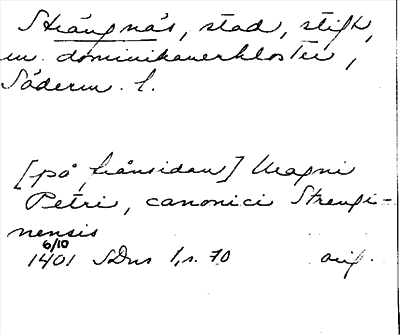 Strängnäs, stad, stift,
m. dominikanerkloster,
Söderm. l.
[på frånsidan] Magni
Petri, canonici Strengi-
nensis
6/10
1401 SDns 1, s. 70 orig.